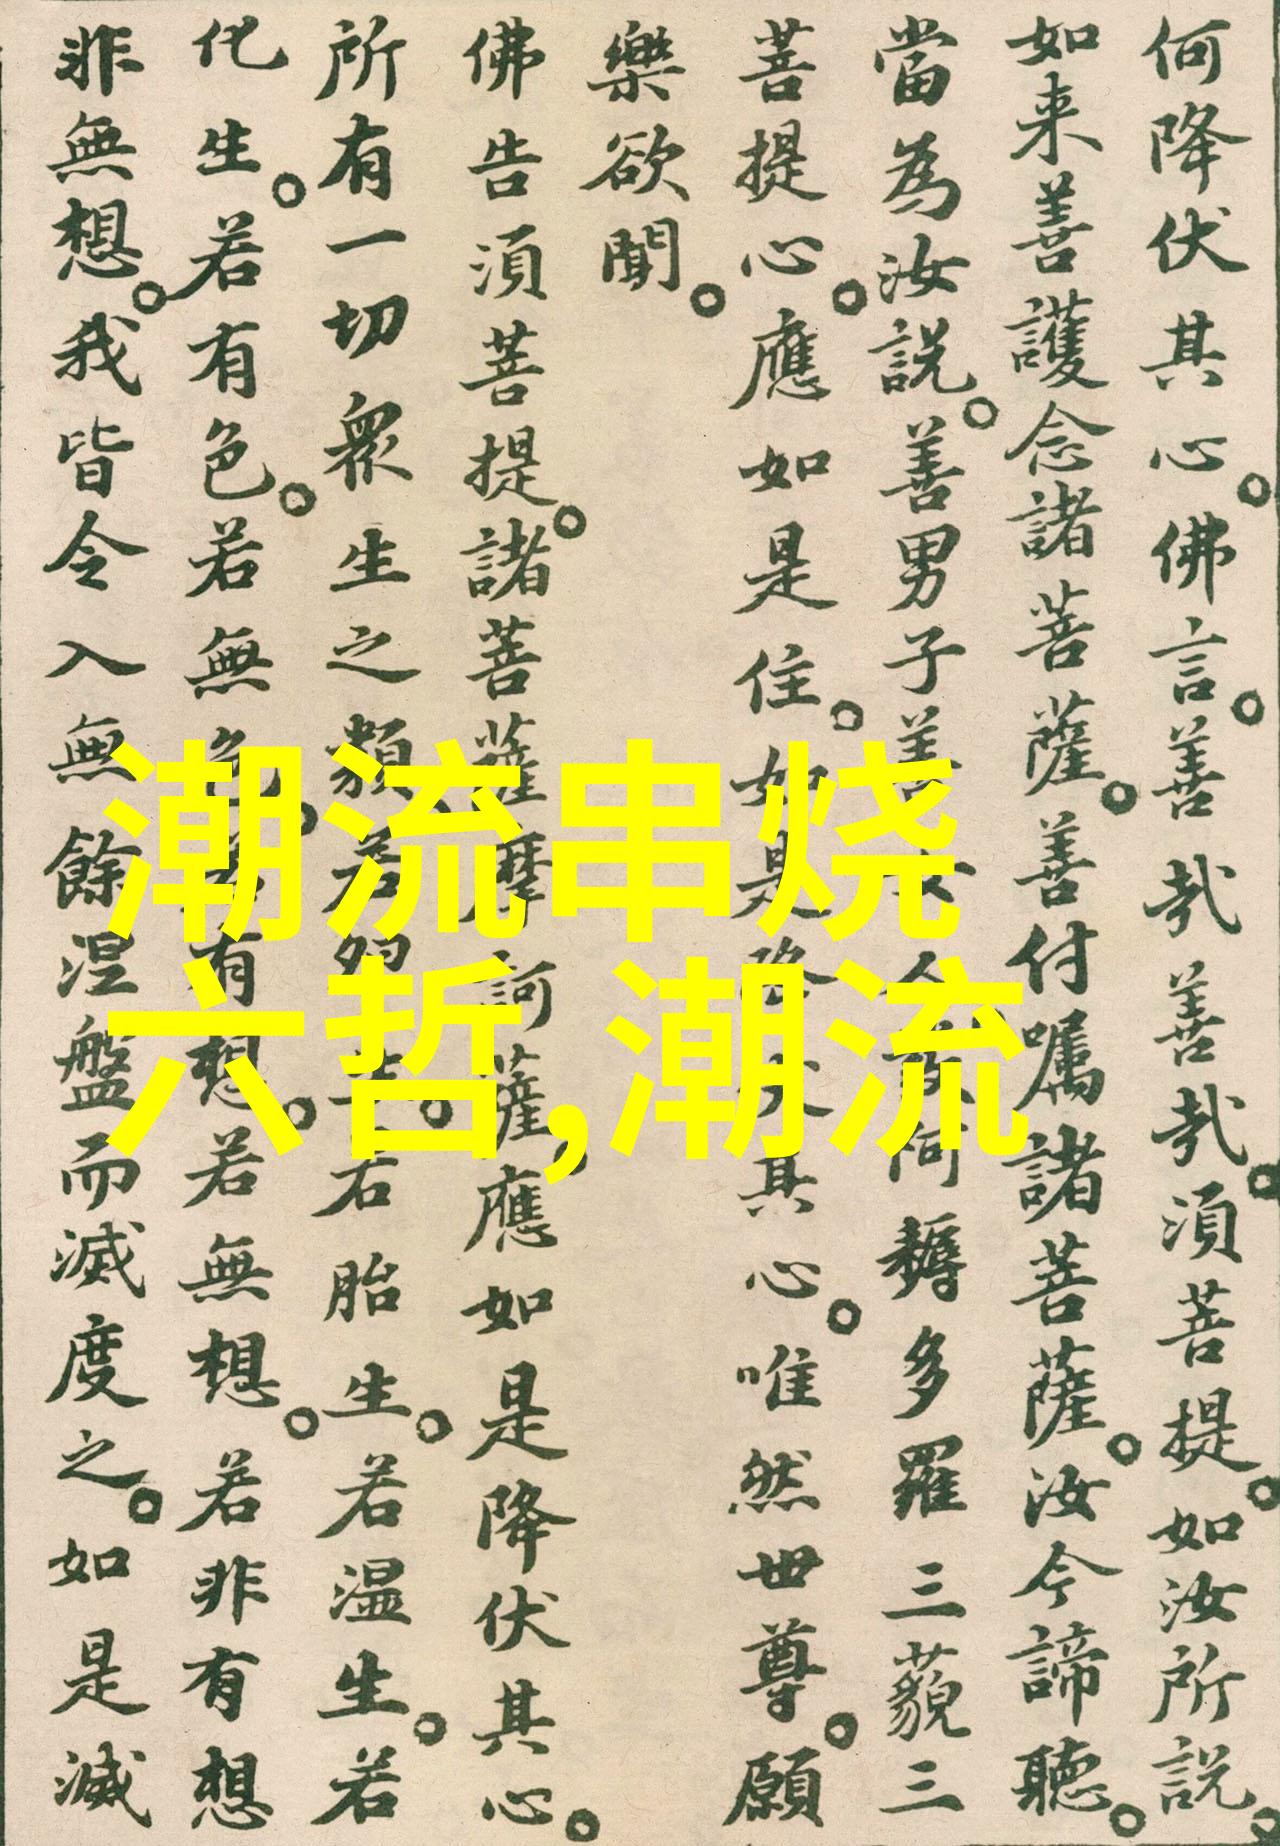 何降伏其心。佛言。善哉善哉。須菩提。如汝所說。
如来善護念諸菩薩。善付囑諸菩薩。汝今諦聽。
當為汝說。善男子善女人發阿耨多羅三藐三
菩提心。應如是住。如是降伏其心。唯然世尊。願
樂欲聞。
佛告須菩提。諸菩薩摩訶薩。應如是降伏其心。
所有一切眾生之類。若卵生。若胎生。若温生。若
化生。若有色。若無色。若有想。若無想。若非有想
非無想。我皆令入無餘涅盤而滅度之。如是滅
潮流串烧
六哲,潮流